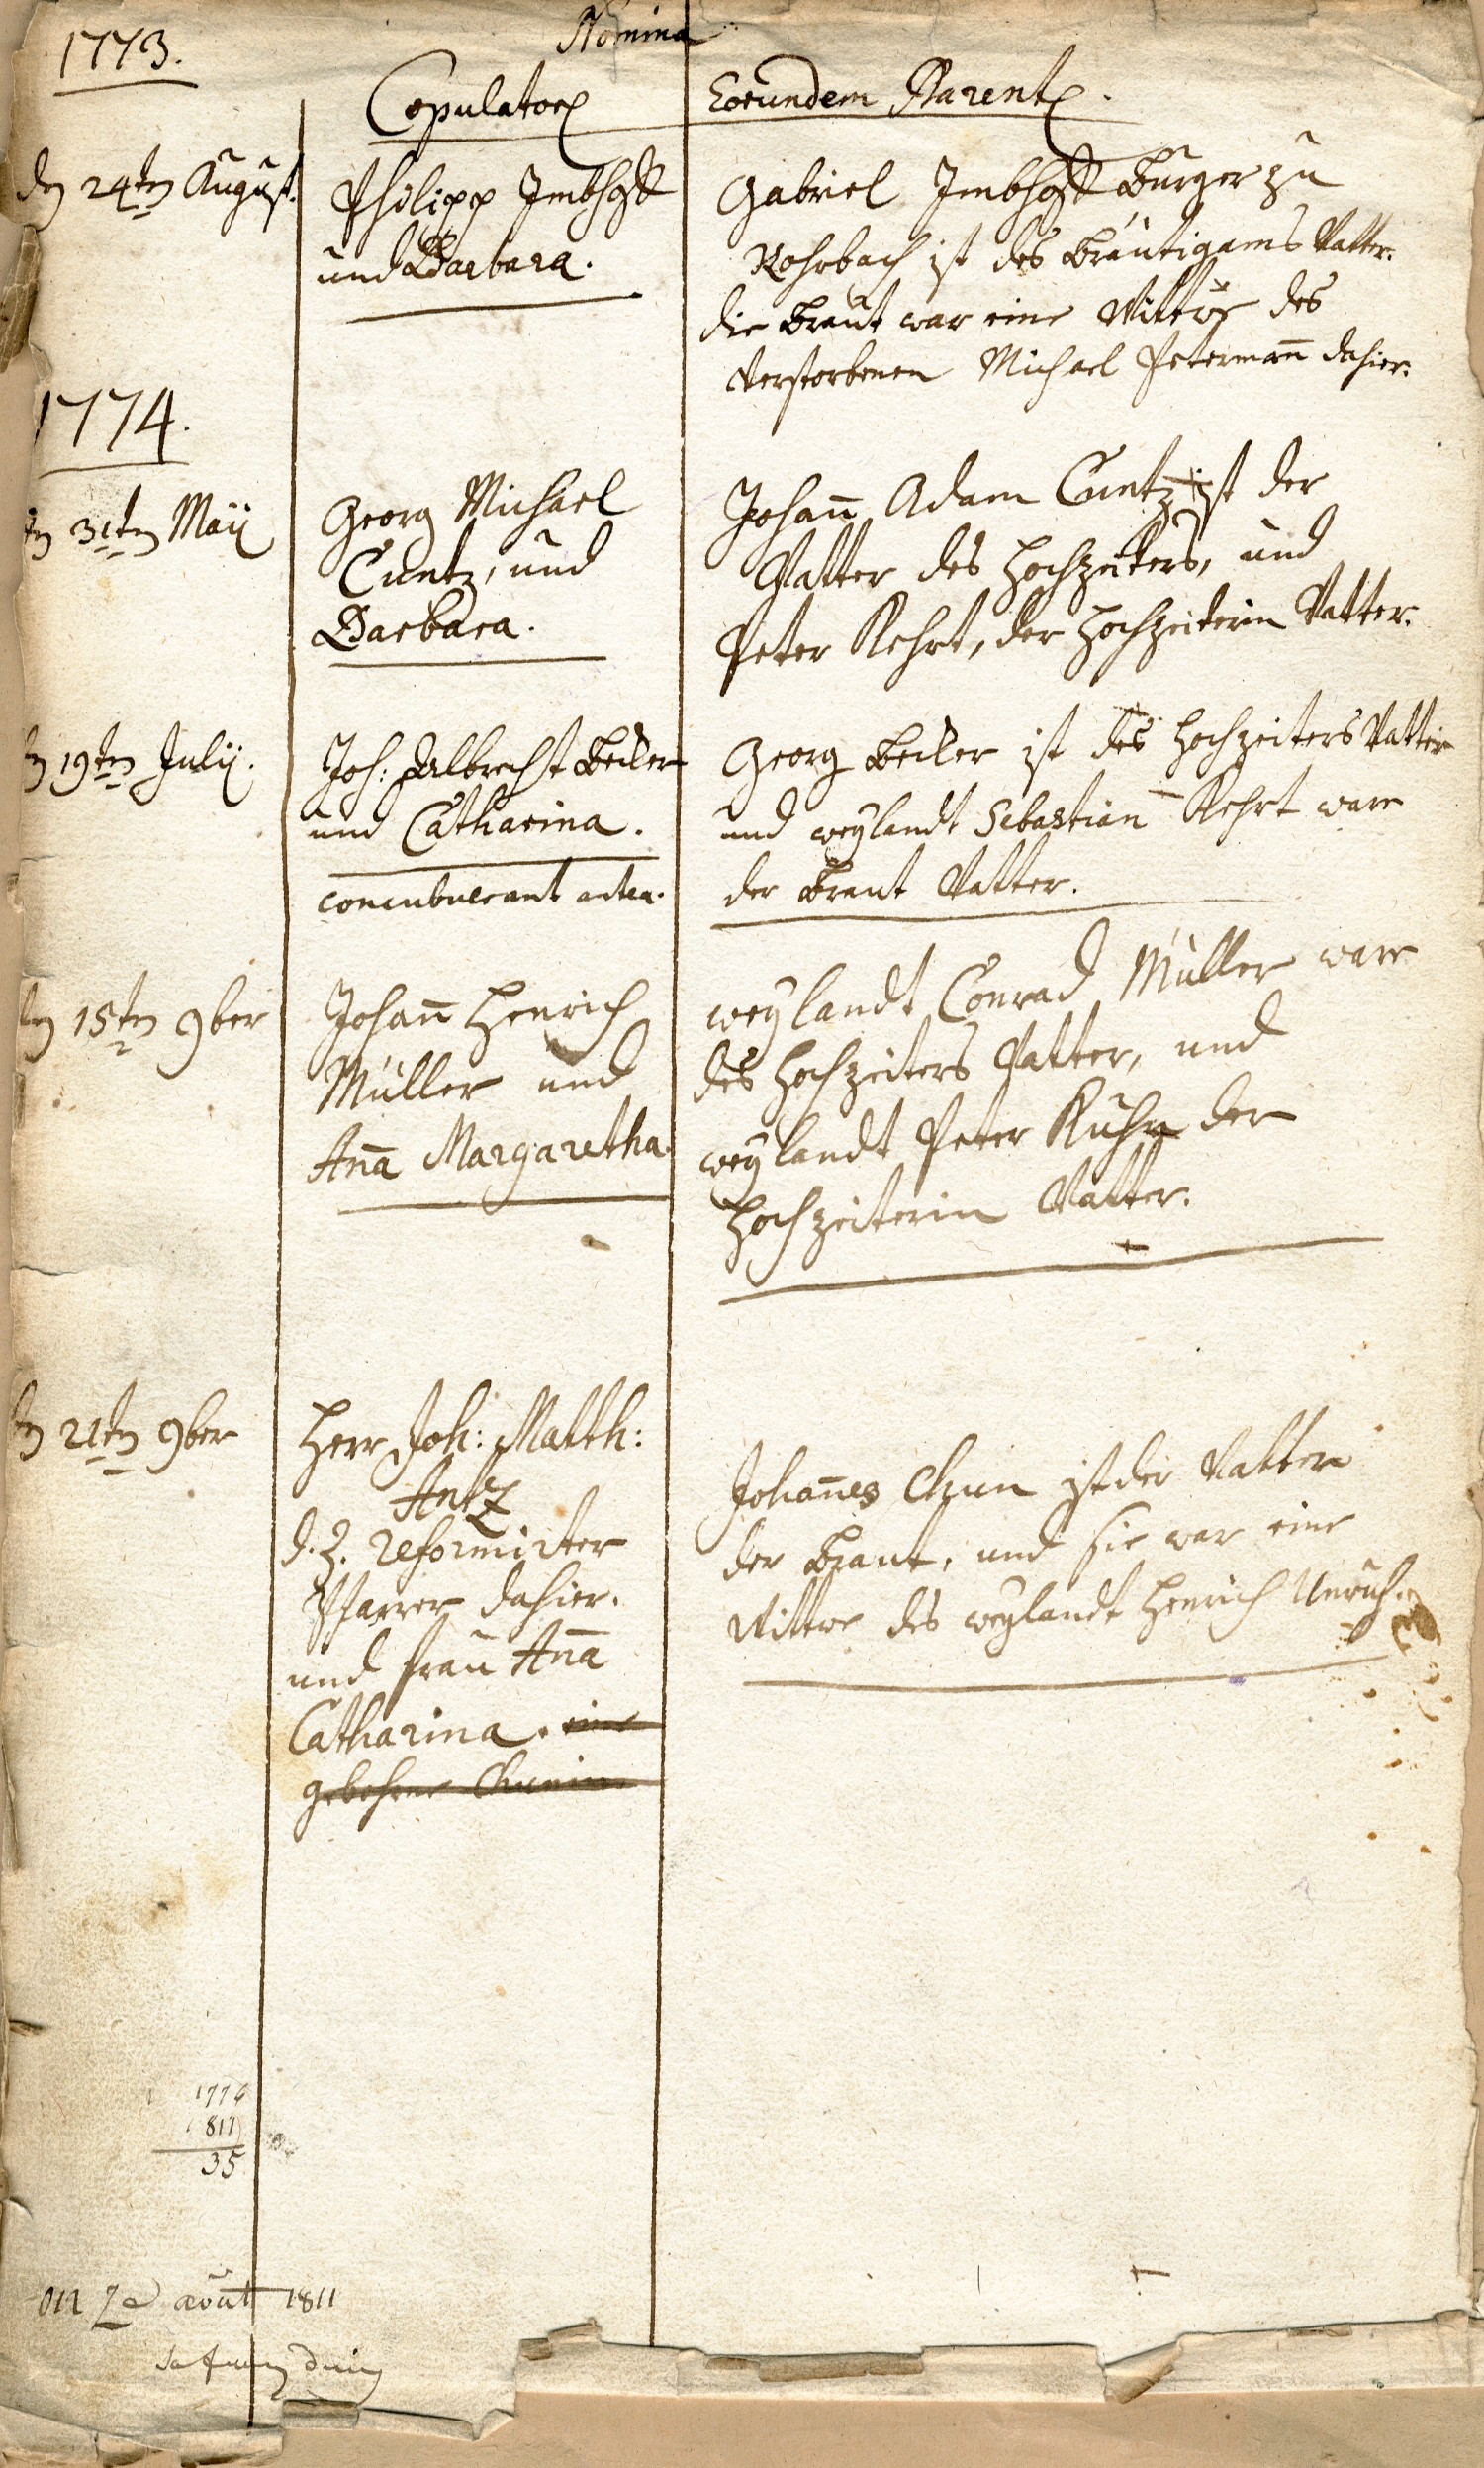 1773.
Nomina
Copulator
Eorundem Parent
den 24ten August.
Philipp Imbhoff
und Barbara.
Gabriel Imbhoff Burger zu
Rohrbach ist des Bräutigams Vatter.
die Braut war eine Wittwe des
verstorbenen Michael Petermañ dahier.
1774.
den 31ten Maij
Georg Michael
Cuntz, und
Barbara.
Johañ Adam Cuntz ist der
Vatter des Hochzeiters, und
Peter Kehrt, der Hochzeiterin Vatter.
den 19ten Julij.
Joh: Albrecht Beiler
und Catharina.
concubuerant antea.
Georg Beiler ist des Hochzeiters Vatter
und weylandt Sebastian Kehrt ware
der Braut Vatter.
den 15ten 9ber
Johañ Henrich
Müller und
Aña Margaretha.
weylandt Conrad Müller ware
des Hochzeiters Vatter, und
weylandt Peter Kuhn der
Hochzeiterin Vatter.
den 21ten 9ber
Herr Joh: Matth:
Antz
d. Z. reformirter
Pfarrer dahier.
und Frau Aña
Catharina. eine
gebohrne
Johañes Chun ist der Vatter
der Braut, und sie war eine
Wittwe des weylandt Henrich Unruh.
1774
1811
35
août 1811